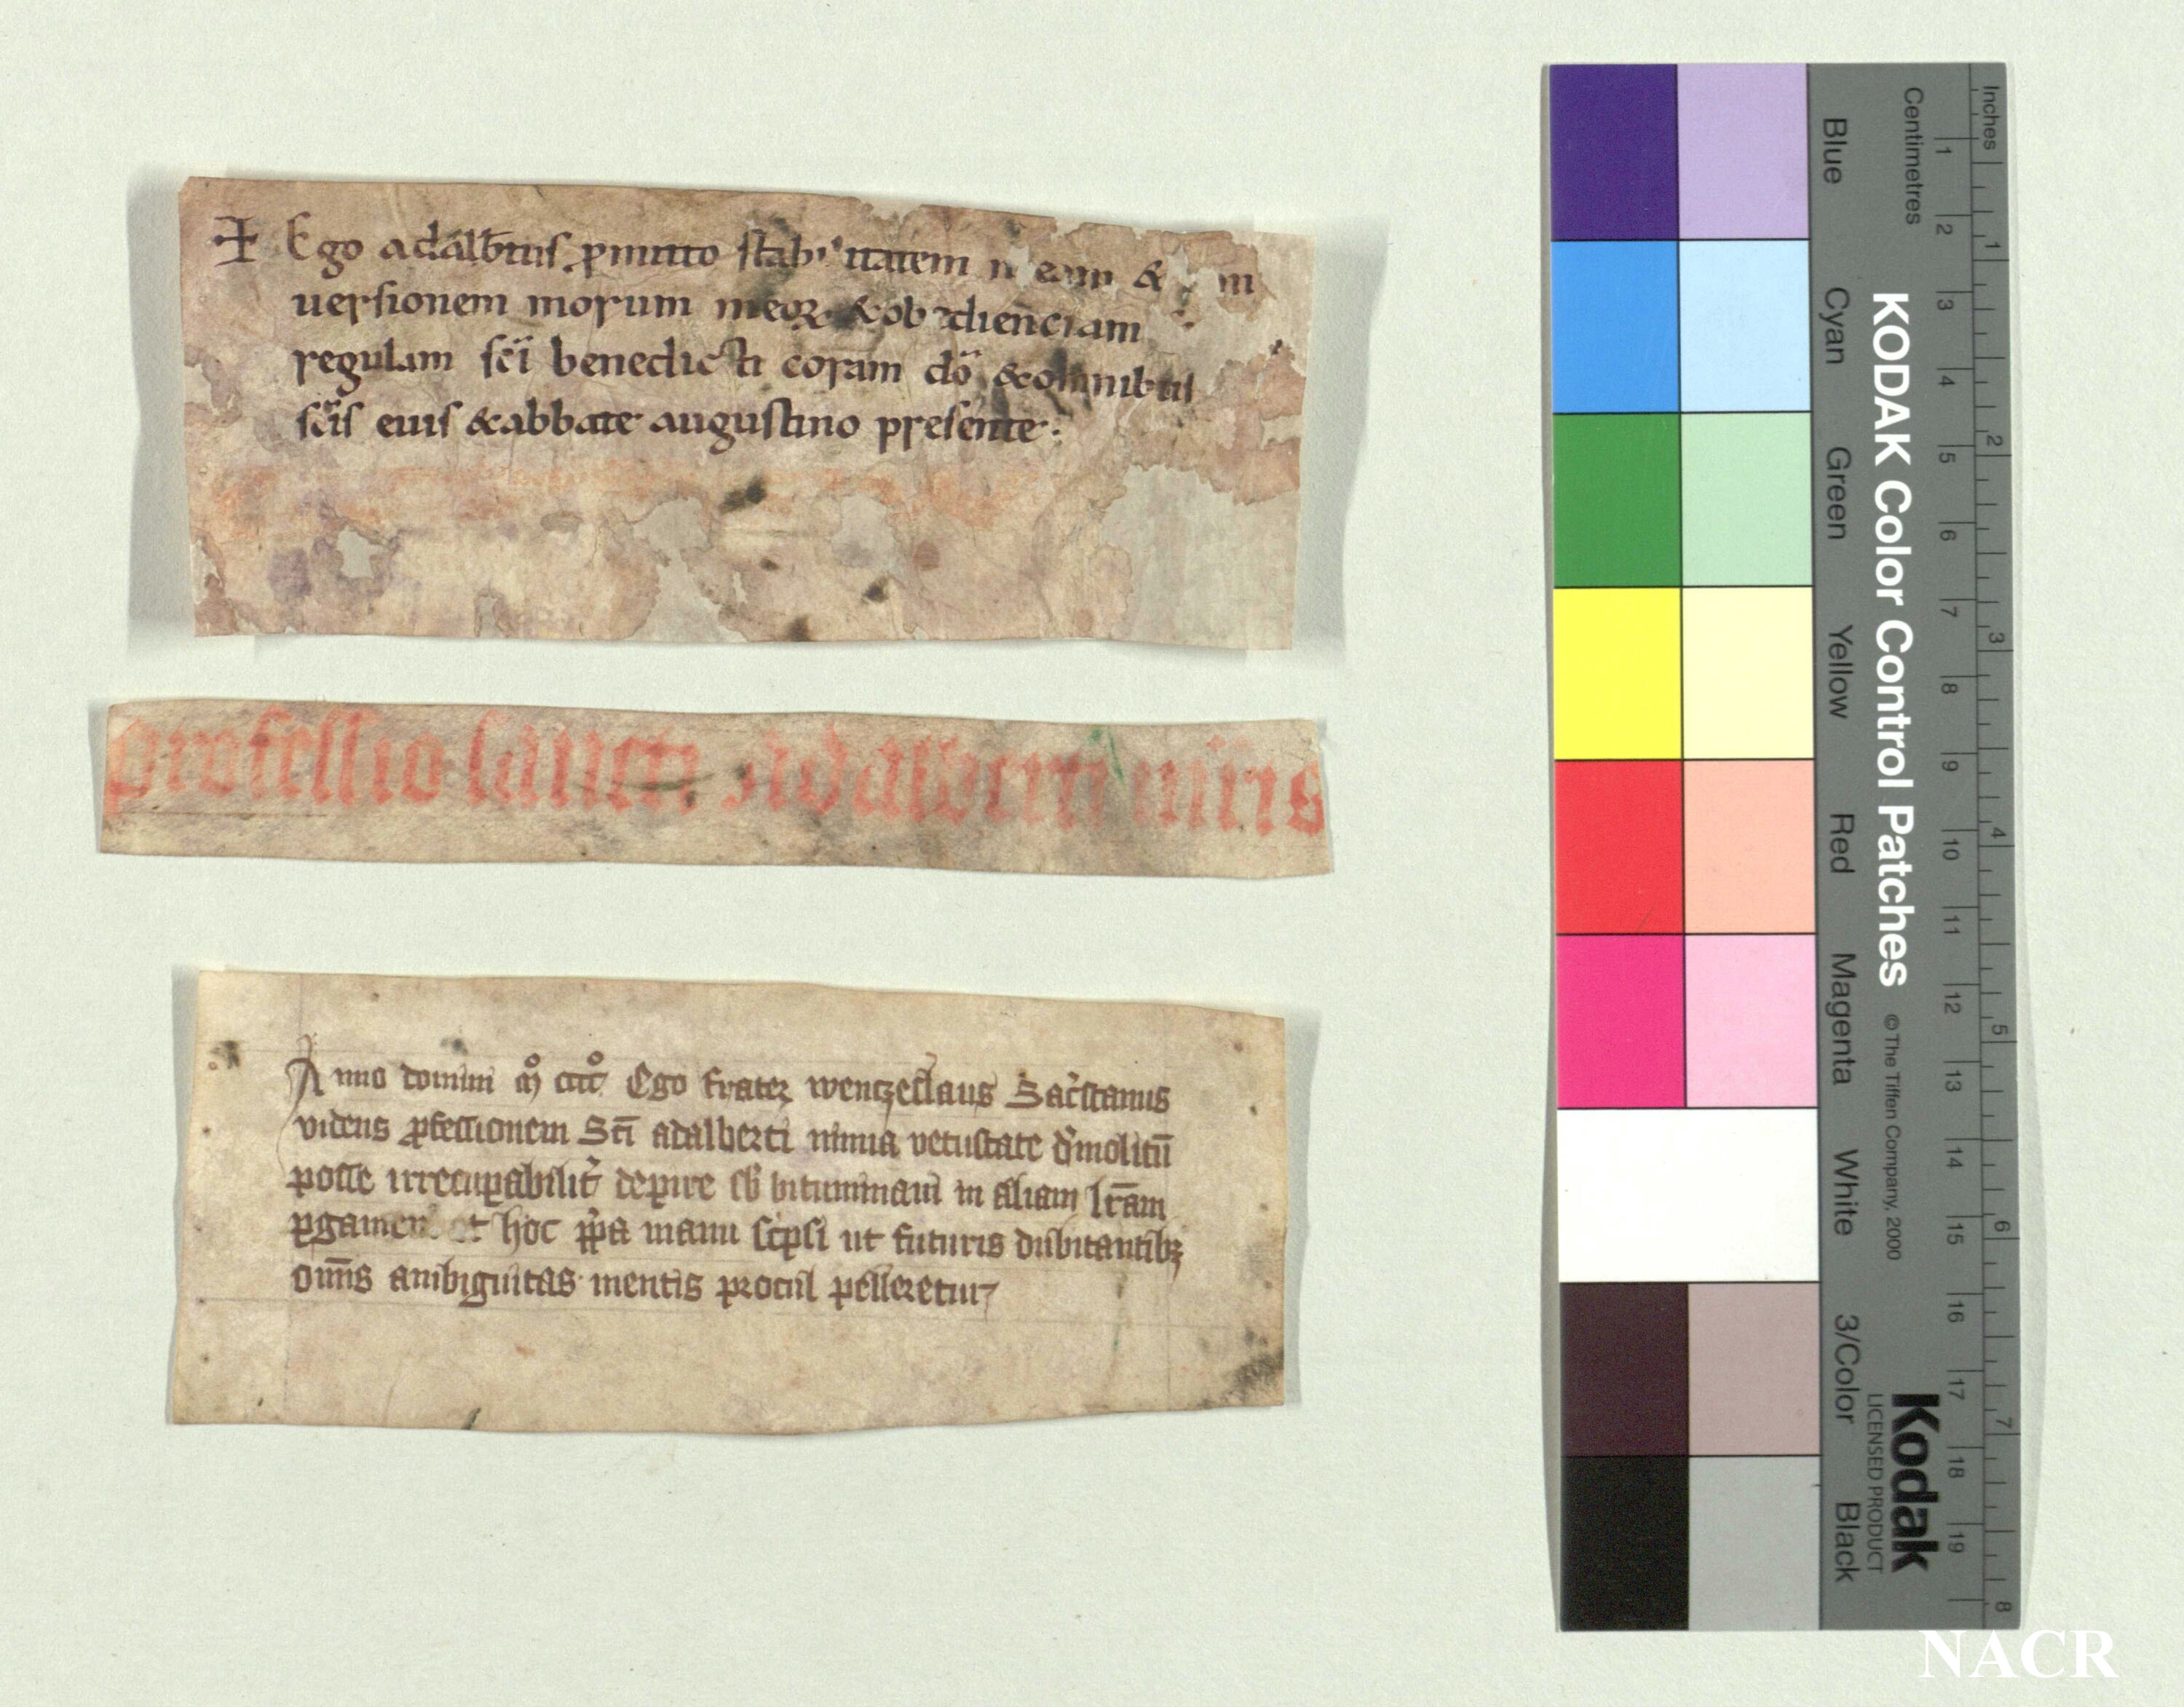 ✠ Ego adalb̄tus ꝓmitto stabilitatem meam &
uersionem morum meoꝝ & obedienciam
regulam sc̄i benedicti coram dō & omnibus
sc̄is eius & abbate augustino presente.
professio sancti Adalberti
Anno domini Ego frater wenczeslaus Sac̓stanus
videns ꝓfessionem Sc̄i adalberti nimia vetustate d̓molitū
posse irrecuꝑabilit̓ deꝑire bituminaui in aliam
et hoc manu ut futuris dubitantibꝫ
om̄s ambiguitas mentis procul pelleretur
Inches
Centimetres
KODAK Color Control Patches
© The Tiffen Company, 2000
Kodak
LICENSED PRODUCT
Blue
Cyan
Green
Yellow
Red
Magenta
White
3/Color
Black
1 2 3 4 5 6 7 8 9 10 11 12 13 14 15 16 17 18 19
1 2 3 4 5 6 7 8
NACR